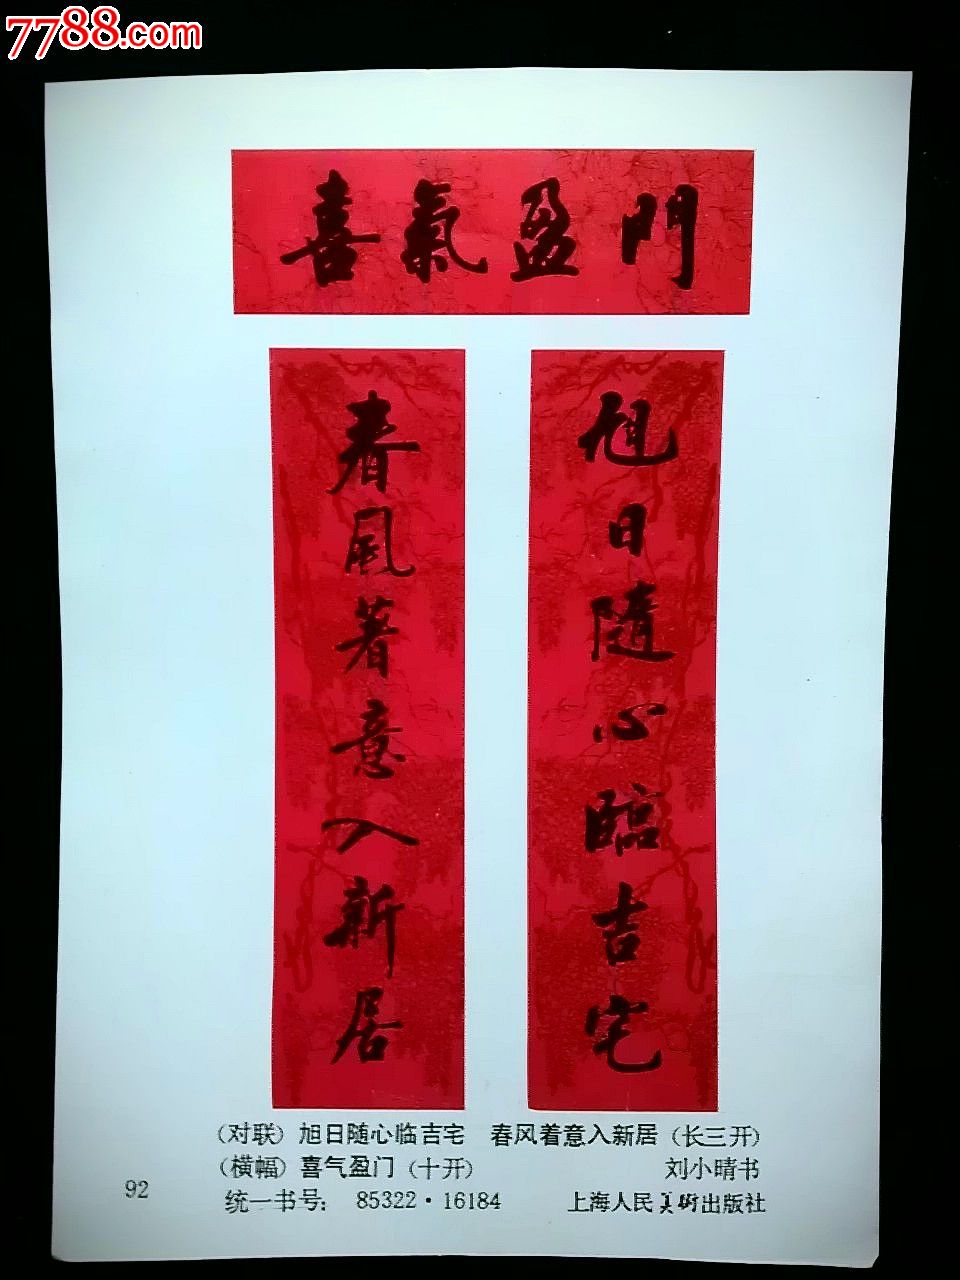 7788.com
喜氣盈門
旭日隨心臨吉宅
春風著意入新居
(对联) 旭日随心临吉宅 春风着意入新居 (长三开)
(横幅) 喜气盈门 (十开) 刘小晴书
统一书号: 85322·16184 上海人民美術出版社
92